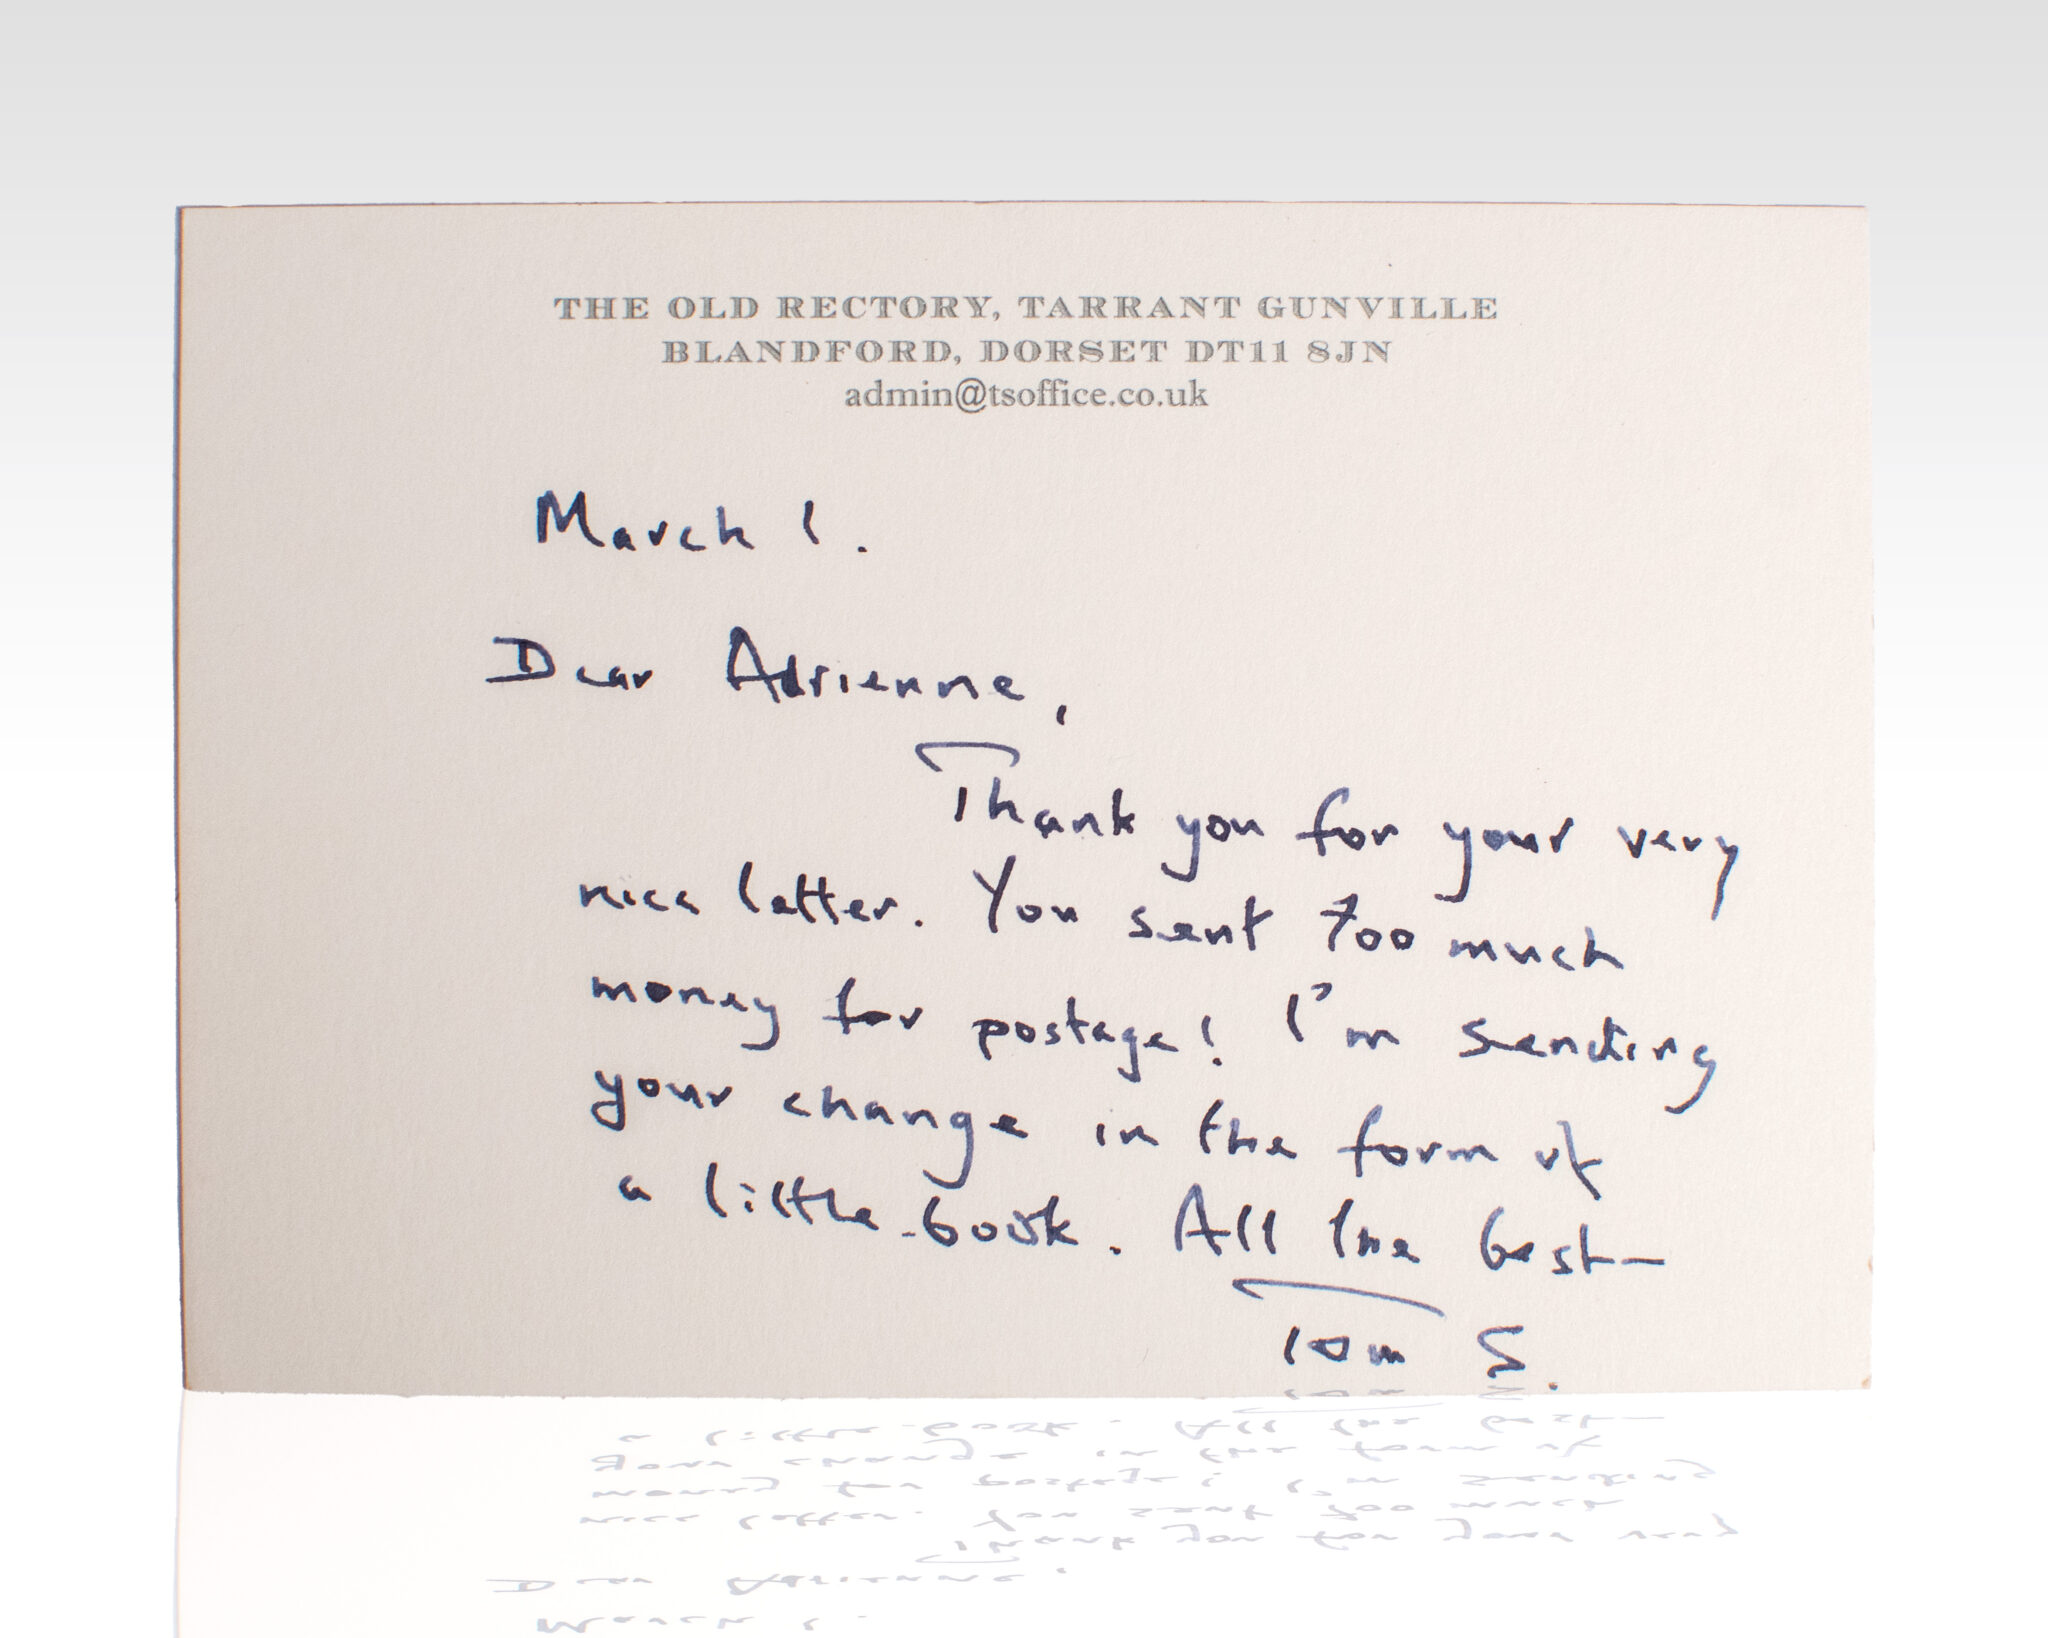 THE OLD RECTORY, TARRANT GUNVILLE
BLANDFORD, DORSET DT11 8JN
admin@tsoffice.co.uk
March 1.
Dear Adrienne,
Thank you for your very
nice letter. You sent too much
money for postage! I'm sending
your change in the form of
a little book. All the best—
Tom S.